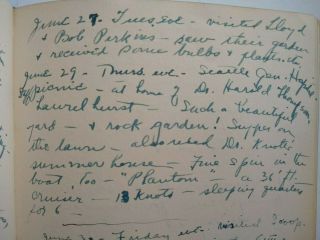 June 27 - Tues. eve - visited Lloyd
& Bob Perkins - saw their garden
& received some bulbs & plants, etc.
June 29 - Thurs. eve - Seattle Gen. Hospital
Staff picnic - at home of Dr. Harold Thompson,
Laurelhurst - Such a beautiful
yard - & rock garden! Supper on
the lawn - also used Dr. Knott's
summer house - Fine spin in the
boat, too - "Phantom" - a 36 ft.
cruiser - 13 Knots - sleeping quarters
for 6 -
June 30 Friday eve. visited